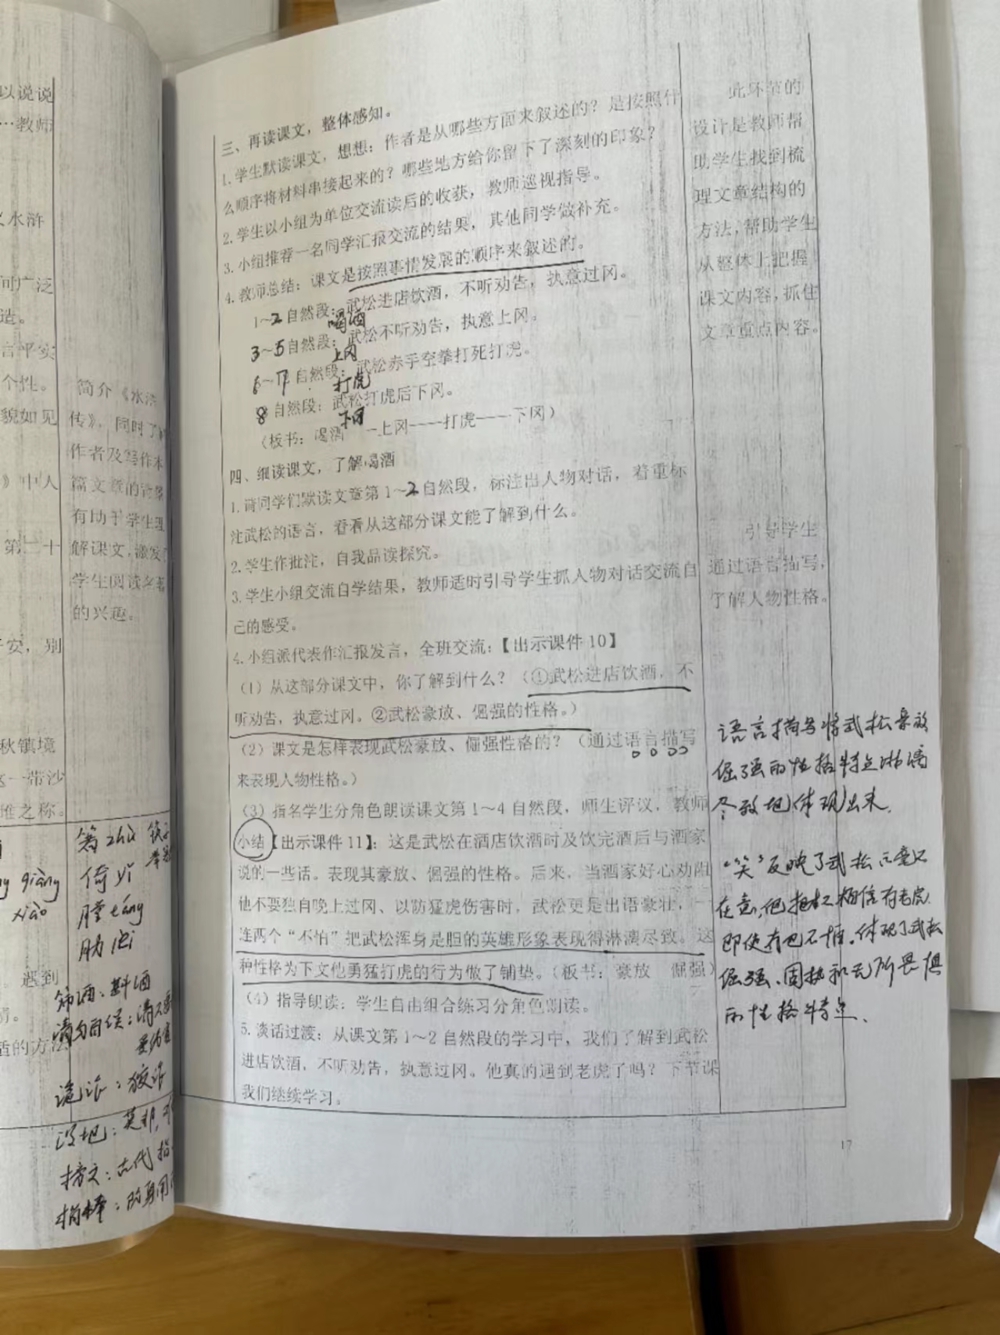 以说说
…教师
义水浒
可广泛
造。
言平实
个性。
貌如见
》中人
第二十
安，别
秋镇境
这一带沙
堆之称。
giàng
xiào
遇到
适的方法
简介《水浒
传》，同时了解
作者及写作本
篇文章的背景
有助于学生理
解课文，激发
学生阅读名著
的兴趣。
箸 zhù
倚 yǐ
膛 táng
肋 lèi
筛酒：斟酒
诡诈：狡诈
榜文：古代
三、再读课文，整体感知。
1.学生默读课文，想想：作者是从哪些方面来叙述的？是按照什
么顺序将材料串接起来的？哪些地方给你留下了深刻的印象？
2.学生以小组为单位交流读后的收获，教师巡视指导。
3.小组推荐一名同学汇报交流的结果，其他同学做补充。
4.教师总结：课文是按照事情发展的顺序来叙述的。
1～2自然段：武松进店饮酒，不听劝告，执意过冈。
喝酒
3～5自然段：武松不听劝告，执意上冈。
上冈
6～17自然段：武松赤手空拳打死打虎。
打虎
8自然段：武松打虎后下冈。
下冈
（板书：喝酒——上冈——打虎——下冈）
四、细读课文，了解喝酒
1.请同学们默读文章第1～2自然段，标注出人物对话，着重标
注武松的语言，看看从这部分课文能了解到什么。
2.学生作批注，自我品读探究。
3.学生小组交流自学结果，教师适时引导学生抓人物对话交流自
己的感受。
4.小组派代表作汇报发言，全班交流：【出示课件10】
（1）从这部分课文中，你了解到什么？（①武松进店饮酒，不
听劝告，执意过冈。②武松豪放、倔强的性格。）
（2）课文是怎样表现武松豪放、倔强性格的？（通过语言描写
来表现人物性格。）
（3）指名学生分角色朗读课文第1～4自然段，师生评议，教师
小结【出示课件11】：这是武松在酒店饮酒时及饮完酒后与酒家
说的一些话。表现其豪放、倔强的性格。后来，当酒家好心劝阻
他不要独自晚上过冈、以防猛虎伤害时，武松更是出语豪壮，一
连两个“不怕”把武松浑身是胆的英雄形象表现得淋漓尽致。这
种性格为下文他勇猛打虎的行为做了铺垫。（板书：豪放 倔强）
（4）指导朗读：学生自由组合练习分角色朗读。
5.谈话过渡：从课文第1～2自然段的学习中，我们了解到武松
进店饮酒，不听劝告，执意过冈。他真的遇到老虎了吗？下节课
我们继续学习。
此环节的
设计是教师帮
助学生找到梳
理文章结构的
方法，帮助学生
从整体上把握
课文内容，抓住
文章重点内容。
引导学生
通过语言描写，
了解人物性格。
语言描写将武松豪放
倔强的性格特点淋漓
尽致地体现出来.
“笑”反映了武松
在意，他抱起相信有老虎.
即使有也不怕.体现了武松
倔强、固执和无所畏惧
的性格特点.
17